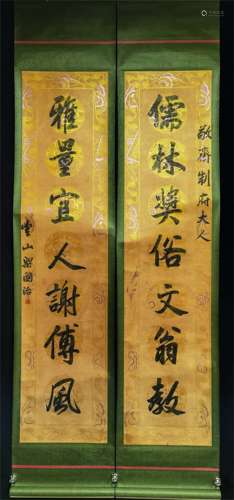 敬齋制府大人
儒林獎俗文翁教
雅量官人謝傅風
雪山梁國治